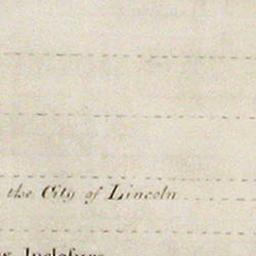 the City of Lincoln
Inclosure